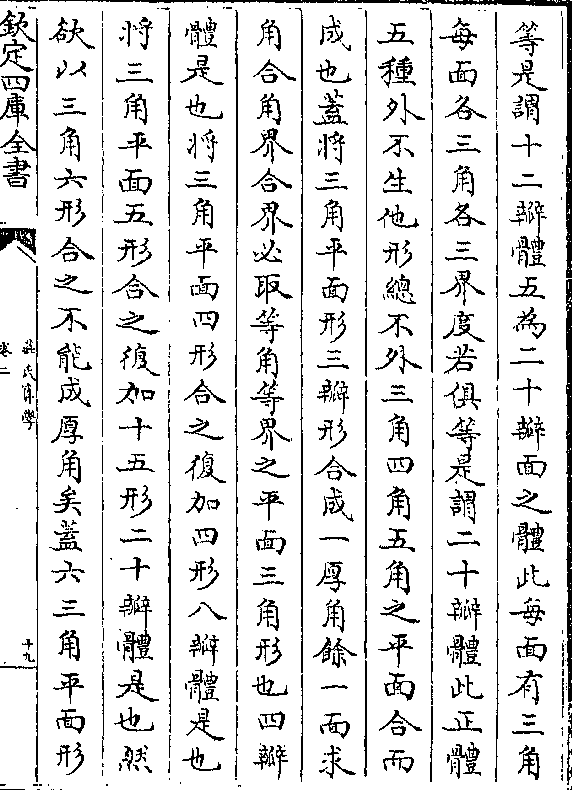 等是謂十二瓣體五為二十瓣面之體此每面有三角
每面各三角各三界度若俱等是謂二十瓣體此正體
五種外不生他形總不外三角四角五角之平面合而
成也蓋將三角平面形三瓣形合成一厚角餘一面求
角合角界合界必取等角等界之平面三角形也四瓣
體是也將三角平面四形合之復加四形八瓣體是也
將三角平面五形合之復加十五形二十瓣體是也然
欲以三角六形合之不能成厚角矣蓋六三角平面形
欽定四庫全書
卷二
十九